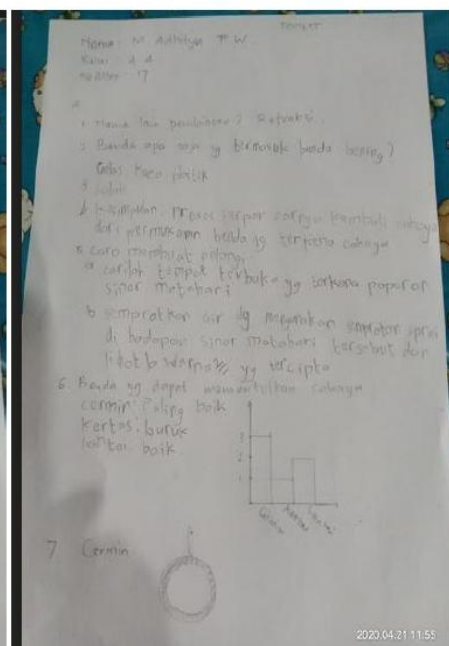 Nama : M. Adhitya P W
Kelas : 4 A
No Absen : 17
A
1 Nama lain pembiasan? Refraksi.
2 Benda apa saja yg termasuk benda bening?
Gelas Kaca plastik
3
4 kesimpulan. Proses terpancarnya kembali cahaya
dari permukaan benda yg terkena cahaya
5 cara membuat pelangi.
a carilah tempat terbuka yg terkena paparan
sinar matahari
b semprotkan air dg
di hadapan sinar matahari tersebut dan
lihatlah warna² yg tercipta
6. Benda yg dapat memantulkan cahaya
cermin: Paling baik
kertas: buruk
lantai: baik
3
2
1
Cermin
Kertas
Lantai
7 Cermin
2020.04.21 11:55